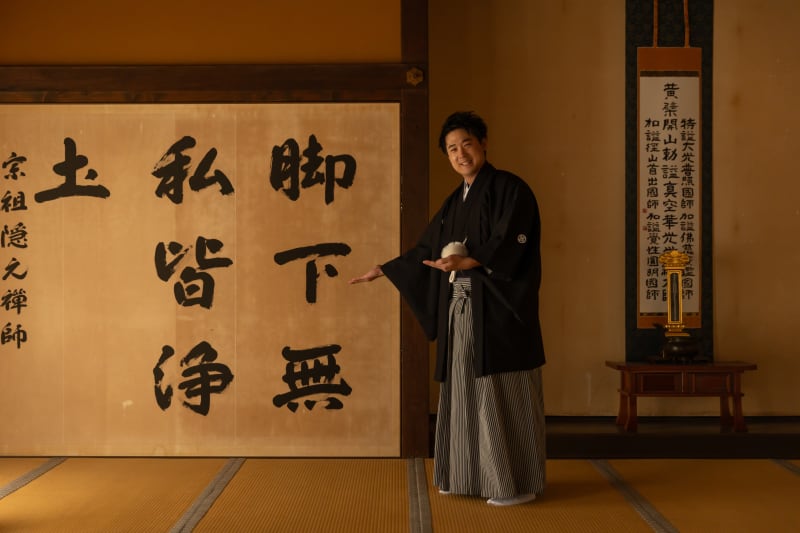 脚下無
私皆浄
土
宗祖隠元禪師
特諡大光普照國師加諡佛慈廣鑑國師
黄檗開山勅諡真空華光大師
加諡径山首出國師加諡覺性圓明國師